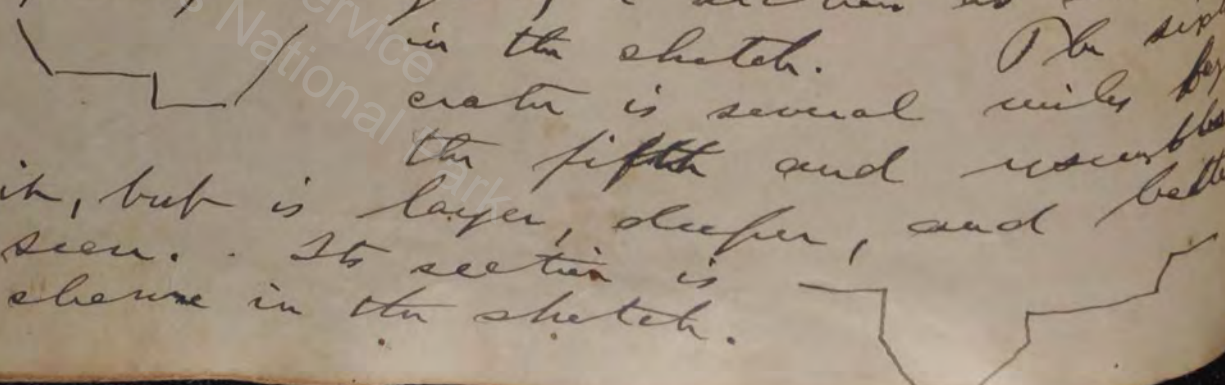 in the sketch. The sixth
crater is several miles
the fifth and resembles
it, but is larger, deeper, and better
seen. Its section is
shown in the sketch.
Service
National Park